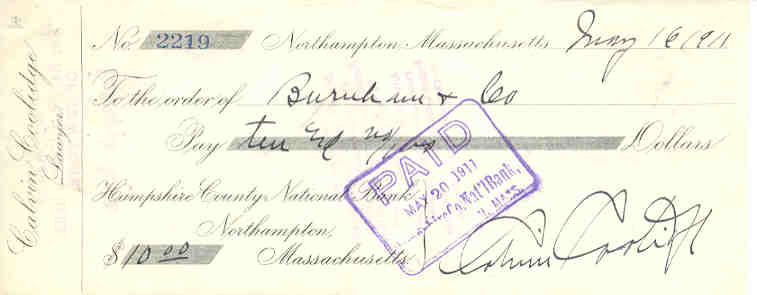 Calvin Coolidge
Lawyer
No. 2219 Northampton, Massachusetts, May 16 1911
To the order of Burnham & Co
Pay ten and no/100 Dollars
Hampshire County National Bank
Northampton,
$10.00 Massachusetts.
PAID
MAY 20 1911
Co. Nat'l Bank,
MASS.
Calvin Coolidge